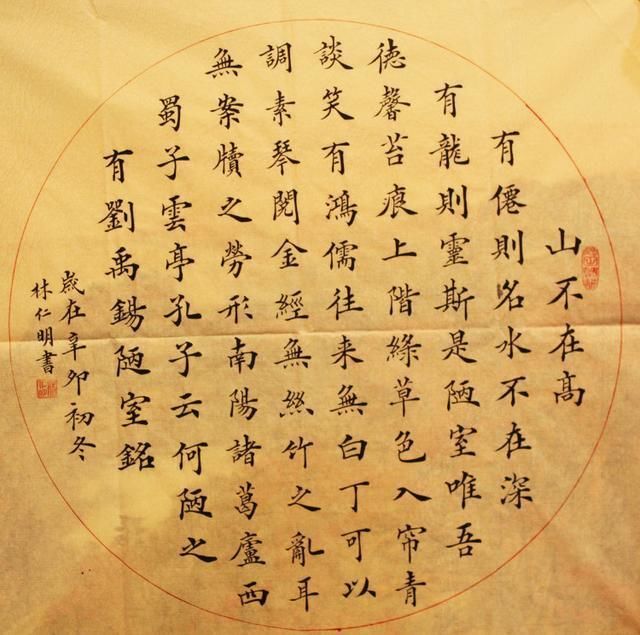 山不在高
有僊則名水不在深
有龍則靈斯是陋室唯吾
德馨苔痕上階綠草色入帘青
談笑有鴻儒往来無白丁可以
調素琴閱金經無絲竹之亂耳
無案牘之勞形南陽諸葛廬西
蜀子雲亭孔子云何陋之
有劉禹錫陋室銘
歲在辛卯初冬
林仁明書